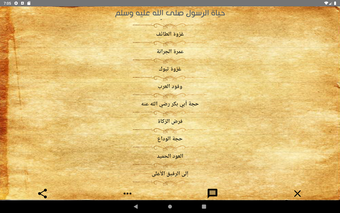 حياة الرسول صلى الله عليه وسلم
غزوة الطائف
عمرة الجرانة
غزوة تبوك
وفود العرب
حجة أبي بكر رضي الله عنه
فرض الزكاة
حجة الوداع
العود الحميد
الى الرفيق الأعلى